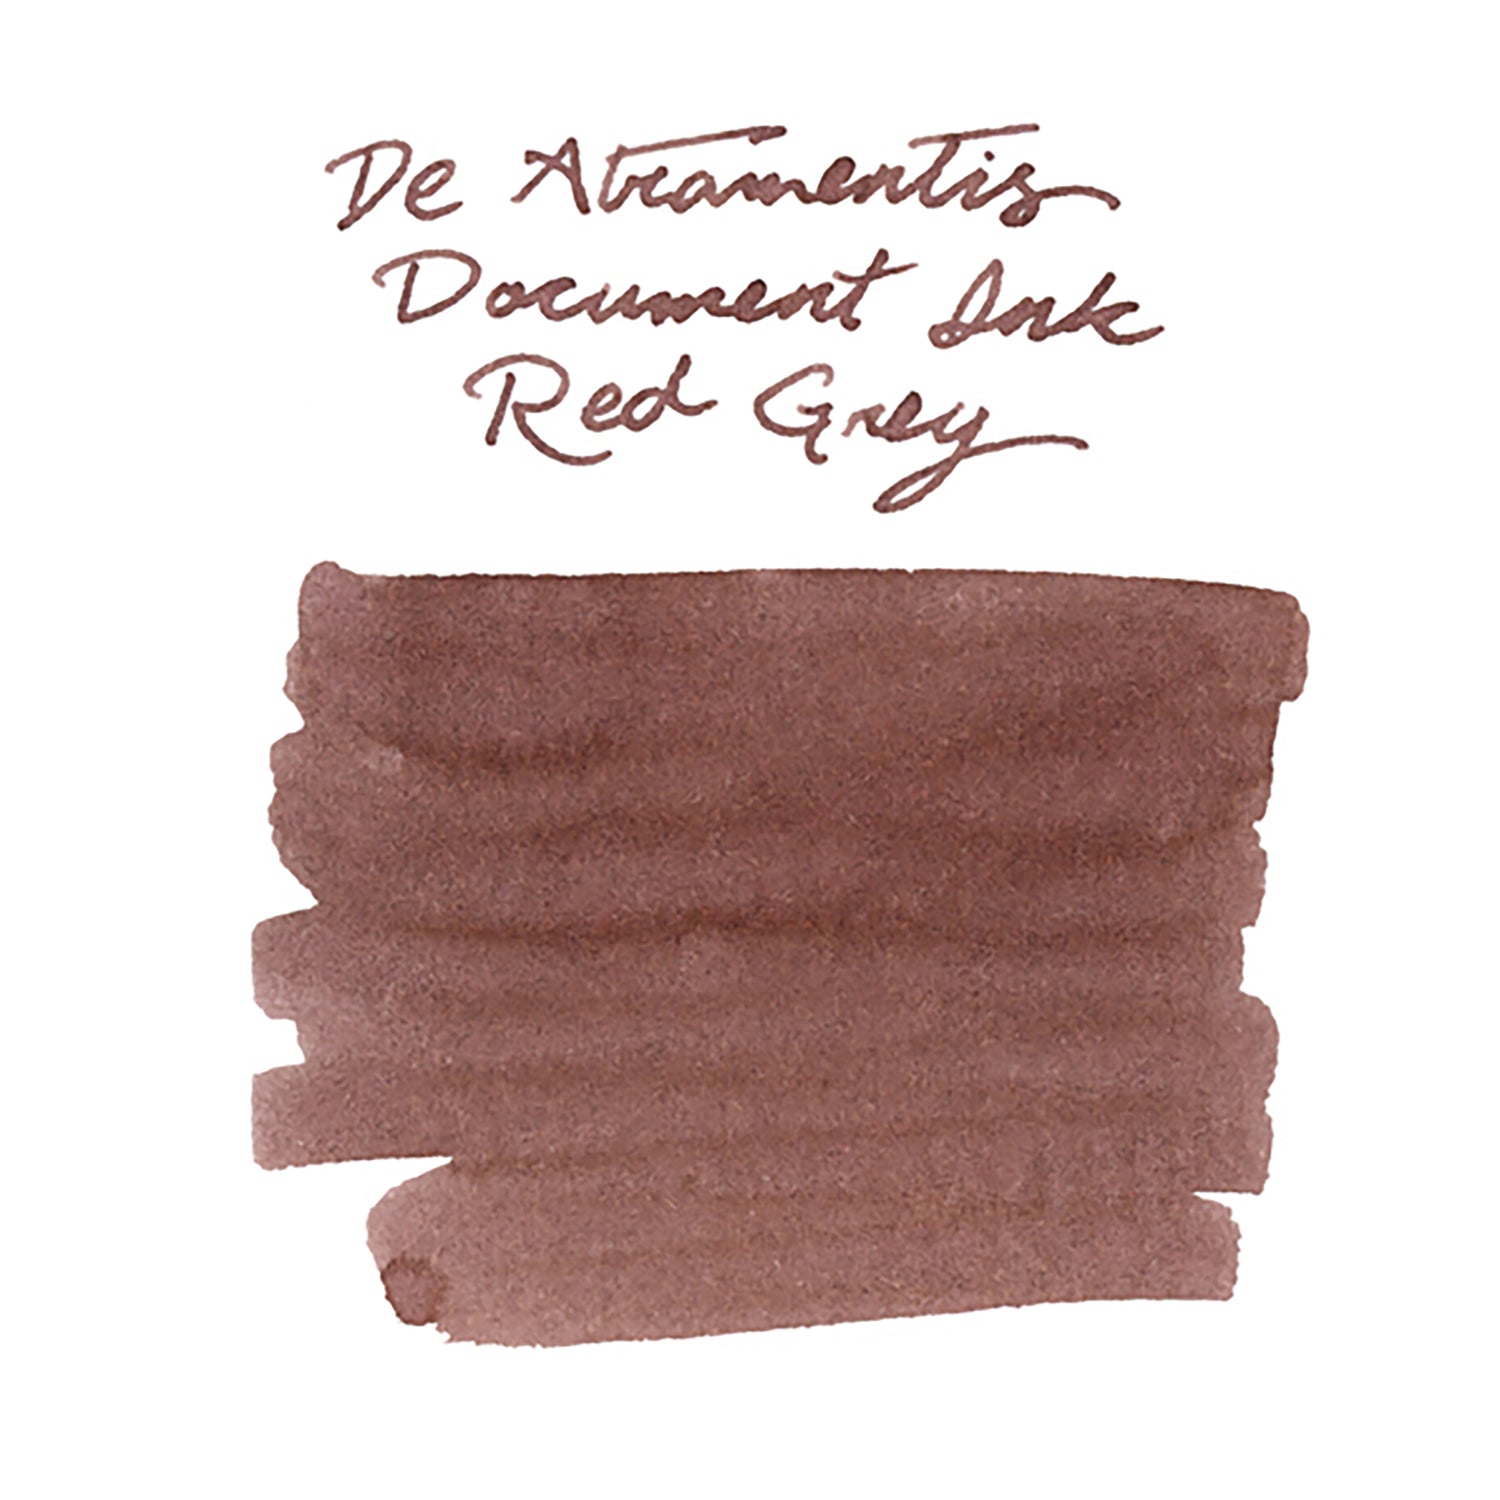 De Atramentis
Document Ink
Red Grey